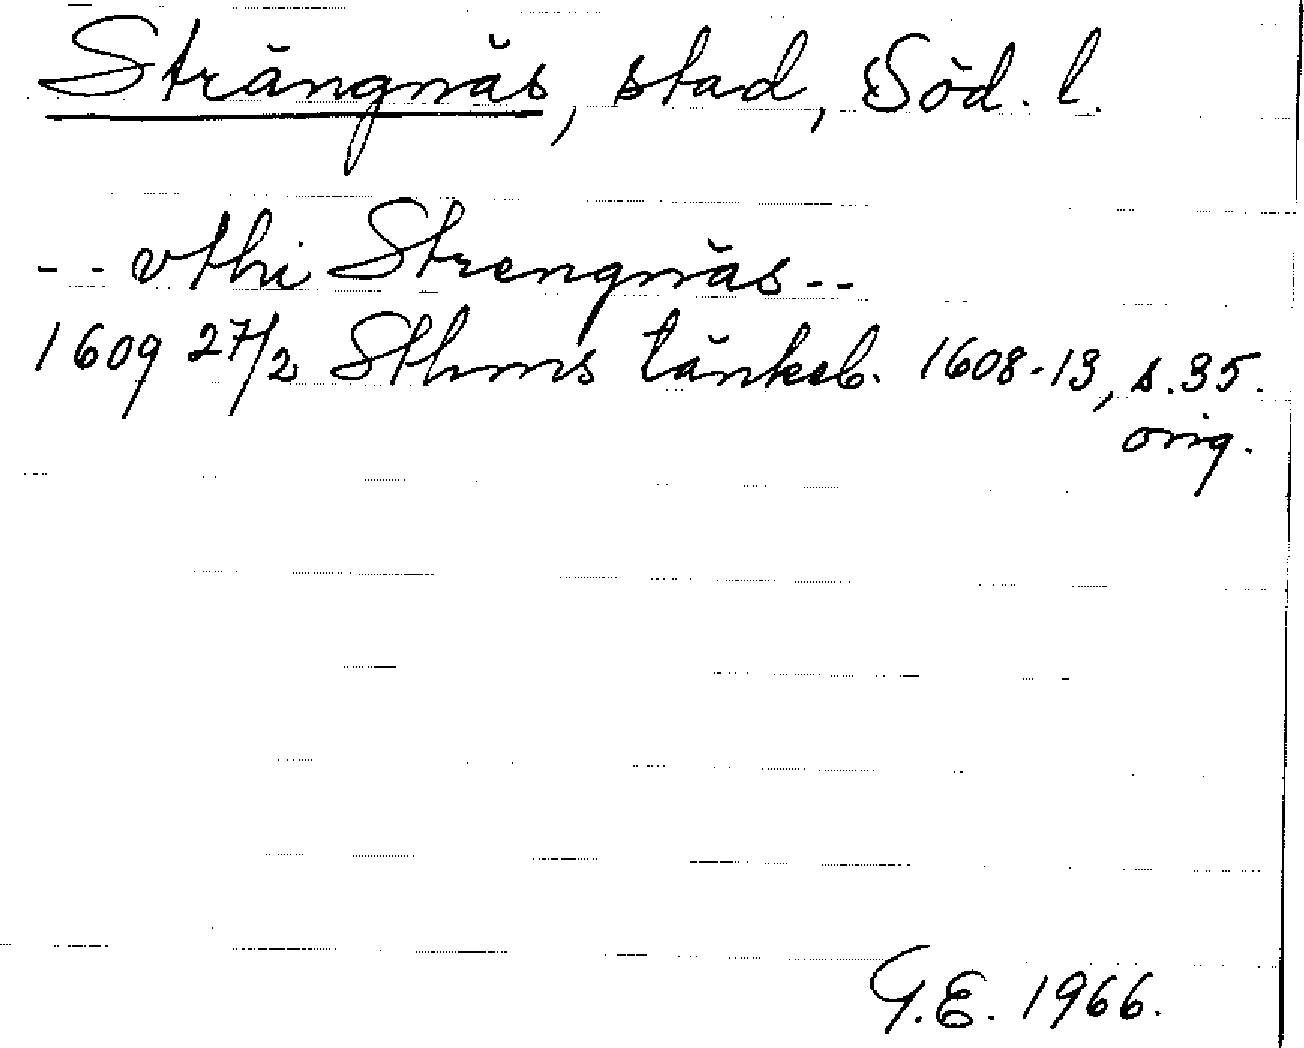 Strängnäs, stad, Söd. l.
-- vthi Strengnäs --
1609 27/2 Sthms tänkeb. 1608-13, s. 35.
orig.
G.E. 1966.